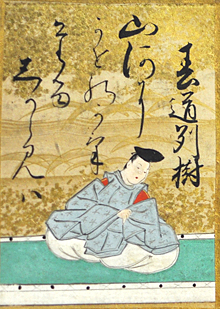 春道列樹
山河に
かせのかけ
たる
しからみハ